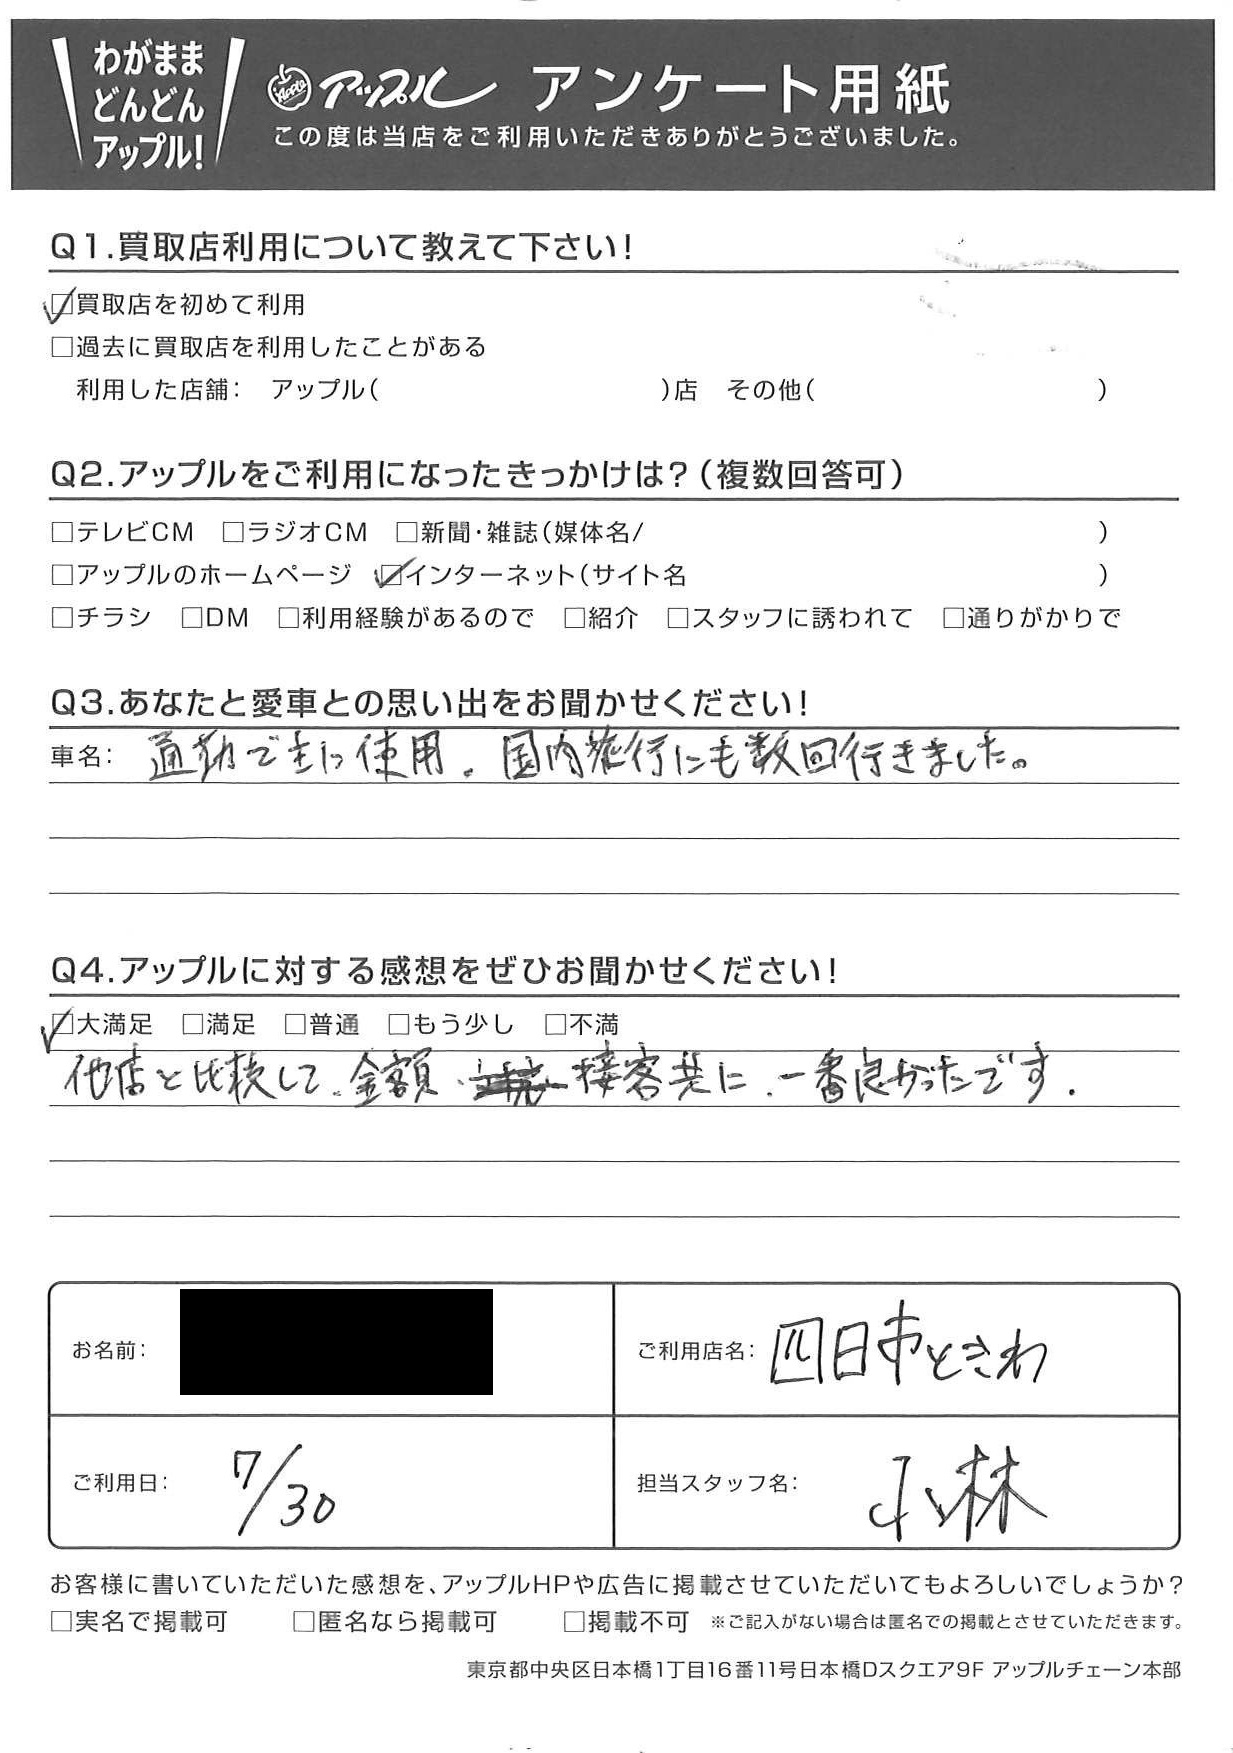 わがまま
どんどん
アップル!
Apple アップル アンケート用紙
この度は当店をご利用いただきありがとうございました。
Q1.買取店利用について教えて下さい!
☑買取店を初めて利用
□過去に買取店を利用したことがある
利用した店舗: アップル( )店 その他( )
Q2.アップルをご利用になったきっかけは?(複数回答可)
□テレビCM □ラジオCM □新聞・雑誌(媒体名/ )
□アップルのホームページ ☑インターネット(サイト名 )
□チラシ □DM □利用経験があるので □紹介 □スタッフに誘われて □通りがかりで
Q3.あなたと愛車との思い出をお聞かせください!
車名: 通勤で主に使用。国内旅行にも数回行きました。
Q4.アップルに対する感想をぜひお聞かせください!
☑大満足 □満足 □普通 □もう少し □不満
他店と比較して、金額、接客共に、一番良かったです.
お名前:
ご利用店名: 四日市ときわ
ご利用日: 7/30
担当スタッフ名: 小林
お客様に書いていただいた感想を、アップルHPや広告に掲載させていただいてもよろしいでしょうか?
□実名で掲載可 □匿名なら掲載可 □掲載不可 ※ご記入がない場合は匿名での掲載とさせていただきます。
東京都中央区日本橋1丁目16番11号日本橋Dスクエア9F アップルチェーン本部